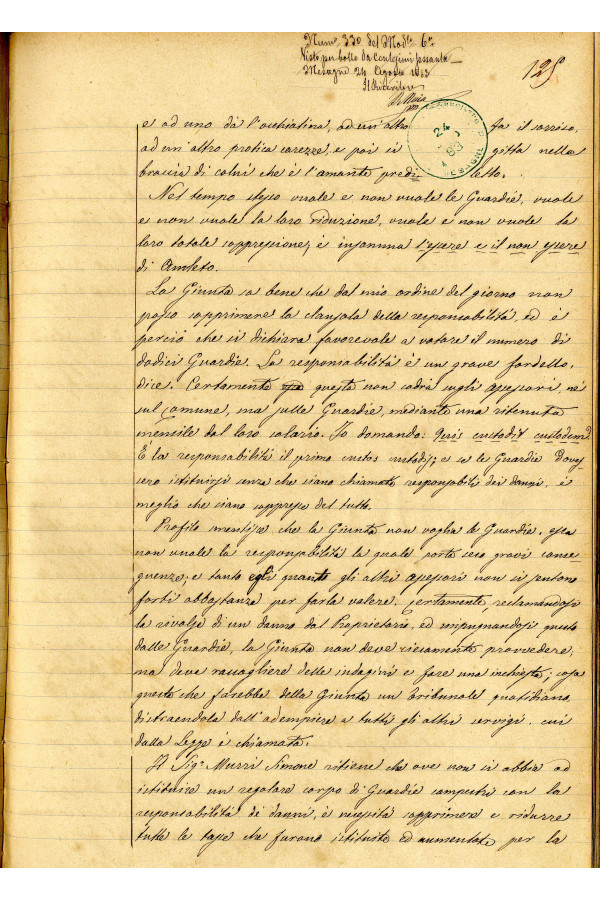 Num° 330 del Mod.° 6°
Visto per bollo da Centesimi sessanta
Mesagne 24 Agosto 1883
Il Ricevitore
125
24
83
e ad uno dà l'occhiatina, ad un'altro fa il sorriso,
ad un'altro prodica carezze, e poi si gitta nelle
braccia di colui che è l'amante prediletto.
Nel tempo stesso vuole e non vuole le Guardie, vuole
e non vuole la loro riduzione, vuole e non vuole la
loro totale soppressione; è insomma l'essere e il non essere
di Amleto.
La Giunta sa bene che dal mio ordine del giorno non
posso sopprimere la clausola della responsabilità, ed è
perciò che si dichiara favorevole a votare il numero di
dodici Guardie. La responsabilità è un grave fardello,
dice. Certamente questa non cadrà sugli assessori, nè
sul Comune, ma sulle Guardie, mediante una ritenuta
mensile dal loro salario. Io domando: quis custodit custodem?
È la responsabilità il primo custos custodis; e se le Guardie doves
sero istituirsi senza che siano chiamate responsabili dei danni, è
meglio che siano soppresse del tutto.
Profilo mentisce che la Giunta non voglia le Guardie, essa
non vuole la responsabilità la quale porta seco gravi conse
guenze, e tanto egli quanto gli altri assessori non si sentono
forti abbastanza per farla valere. Certamente, reclamandosi
la rivolsa di un danno dal Proprietario, ed impugnandosi questo
dalle Guardie, la Giunta non deve ciecamente provvedere,
ma deve raccogliere delle indagini e fare una inchiesta; cosa
questa che farebbe della Giunta un tribunale quotidiano,
distraendola dall'adempiere a tutti gli altri servigi cui
dalla Legge è chiamata.
Il Sig.r Murri Simone ritiene che ove non si abbia ad
istituire un regolare corpo di Guardie campestri con la
responsabilità de' danni, è necessità sopprimere e ridurre
tutte le tasse che furono istituite ed aumentate per la